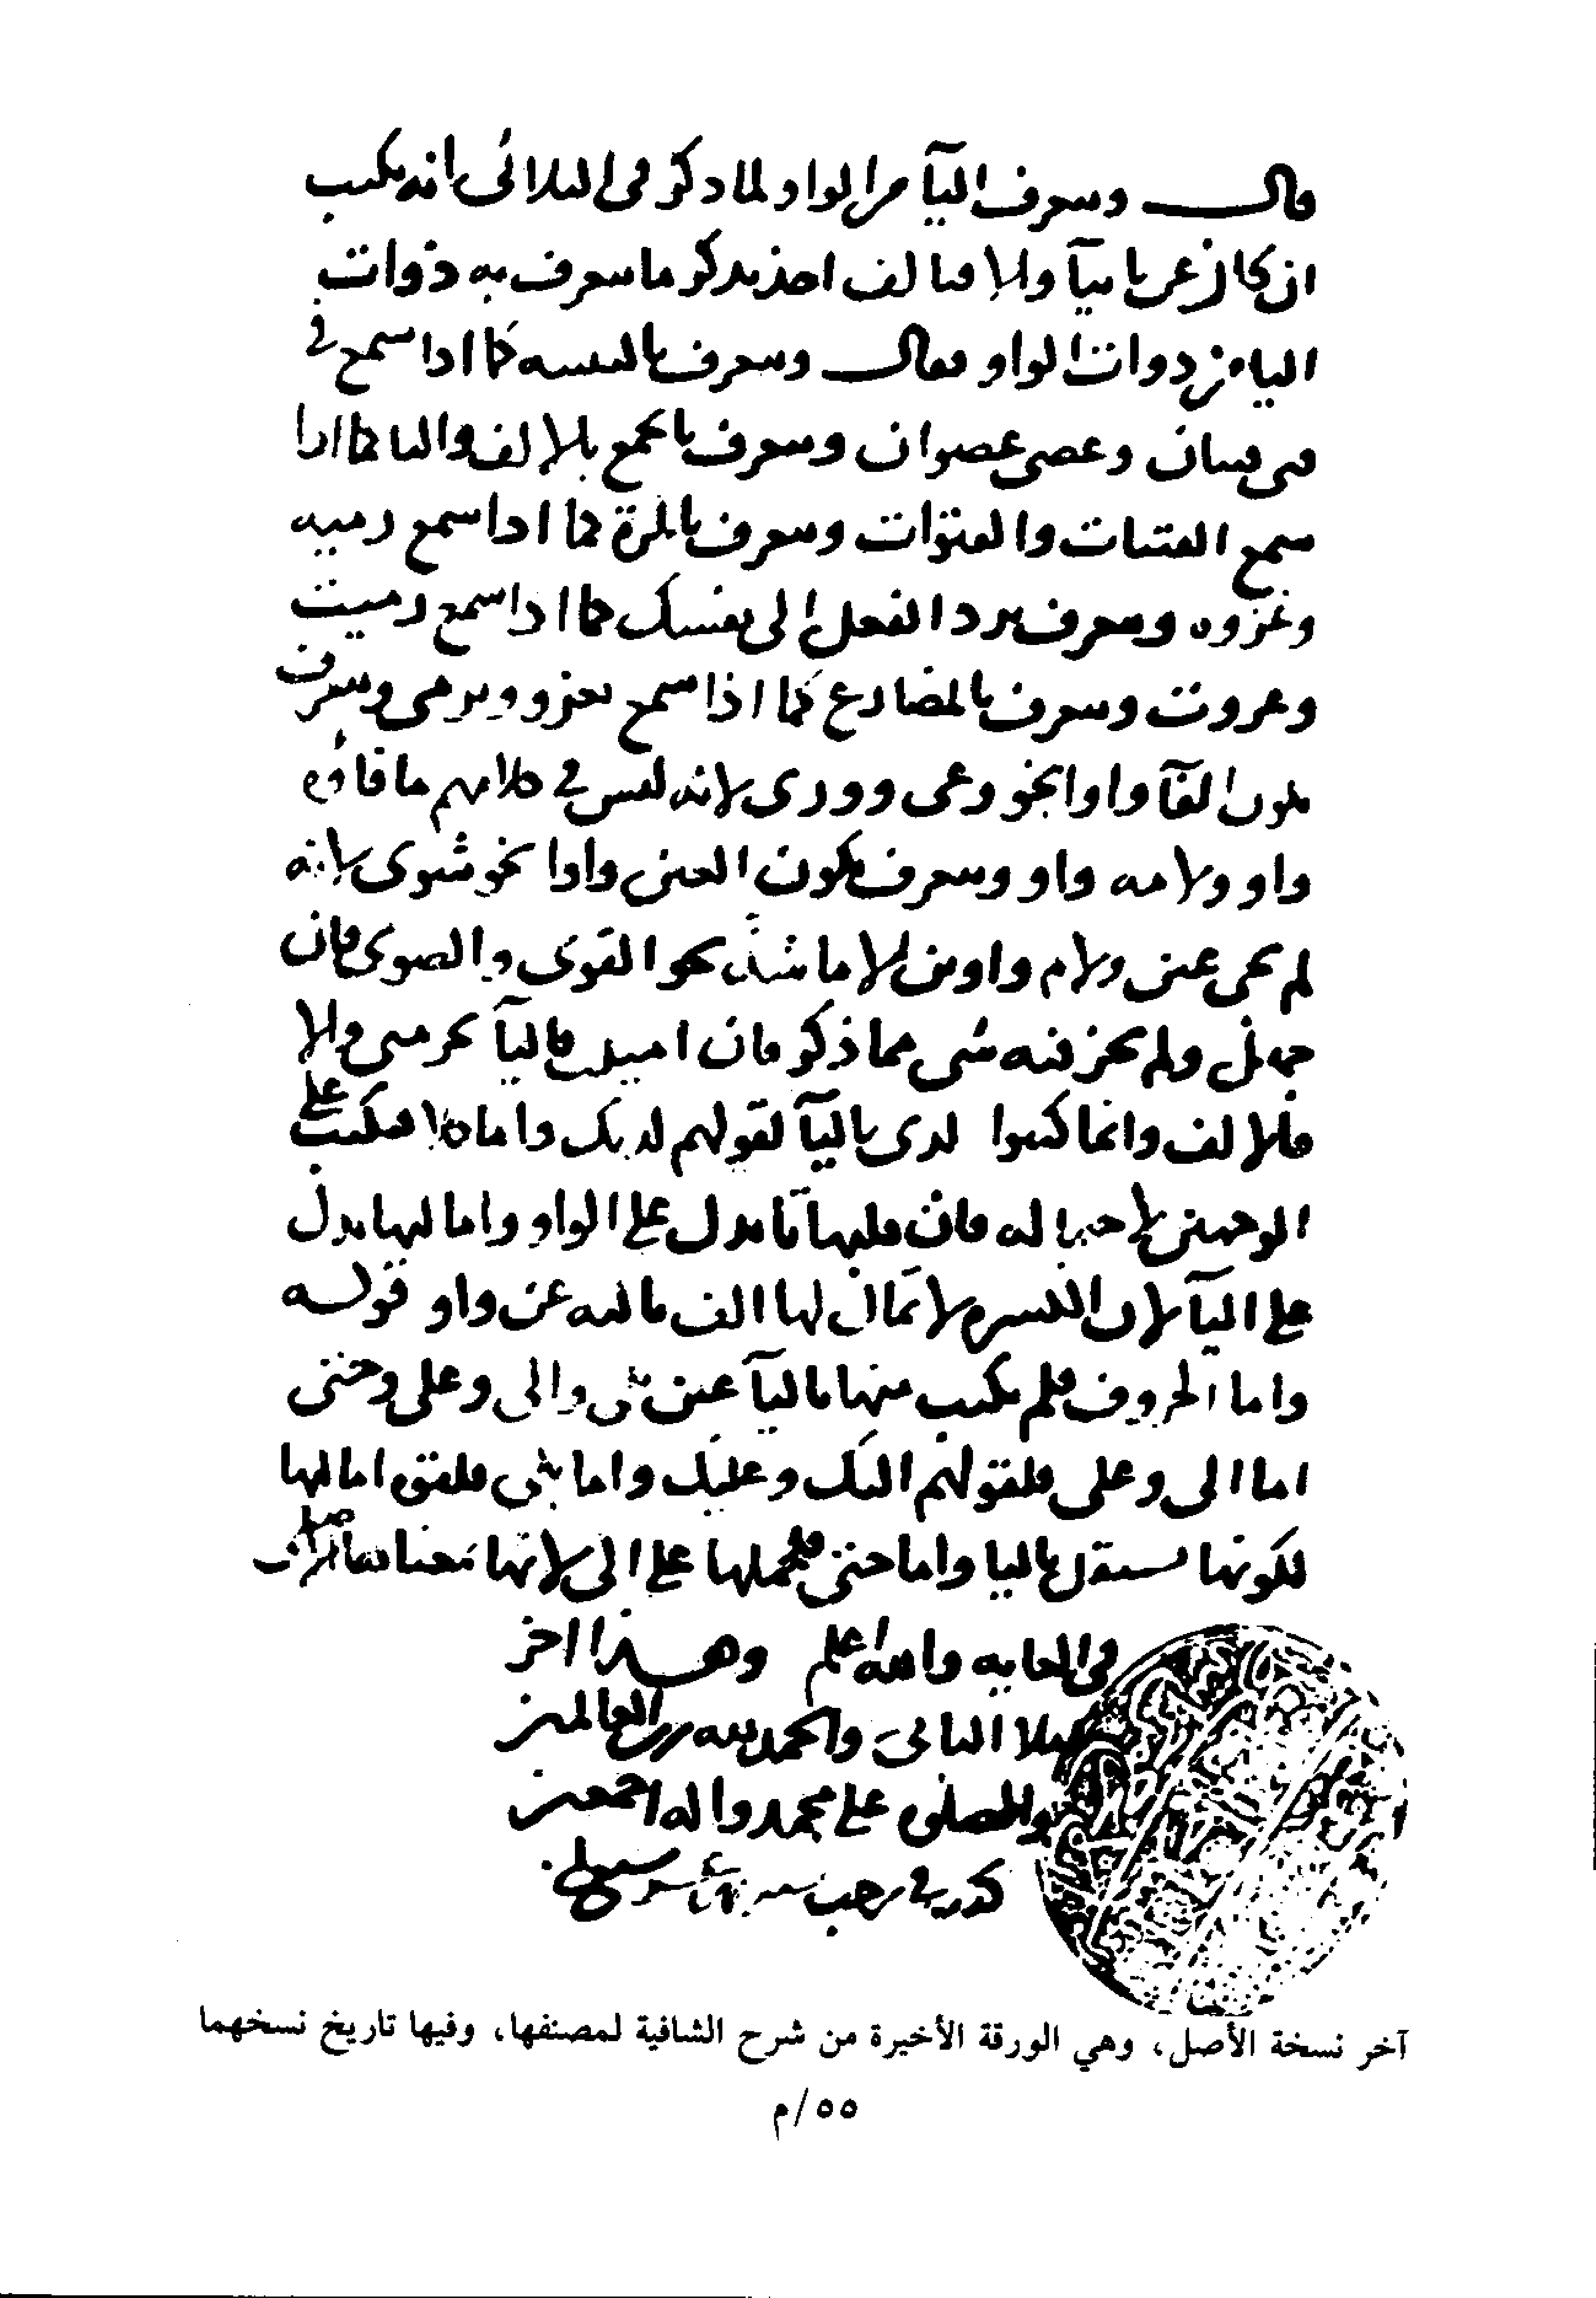 قال ويتعرف اليآ من الواو لما ذكر في الثلاثي انه يكتب
ان كان عن يا بيآ والا فبالف اخذ يذكر ما يتعرف به ذوات
اليا من ذوات الواو فقال ويتعرف بالتثنيه كما اذا سمع في
فتى فتيان وعصى عصوان ويتعرف بالجمع بالالف والتا كما اذا
سمع الفتيات والقنوات ويتعرف بالمرة كما اذا سمع رميه
وغزوه ويتعرف برد الفعل الى نفسك كما اذا سمع رميت
وغزوت ويتعرف بالمضارع كما اذا سمع يغزو ويرمى ويتعرف
بكون الفآ واوا نحو وعى وورى لانه ليس في كلامهم ما فاؤه
واو ولامه واو ويتعرف بكون العين واوا نحو شوى لانه
لم يجى عين ولام واوين الا ما شذ نحو القوى والصوى فان
جهل ولم يجز فيه شى مما ذكر فان اميلت فاليآ نحو متى والا
فالالف وانما كتبوا لدى باليآ لقولهم لديك واما كلا فيكتب على
الوجهين لاحتماله فان قلبها تا يدل على الواو وامالتها يدل
على اليآ لان الكسره لا تمال لها الف ثالثه عن واو قوله
واما الحروف فلم يكتب منها باليآ غير بلى والى وعلى وحتى
اما الى وعلى فلقولهم اليك وعليك واما بلى فلقوه امالتها
لكونها تستقل باليا واما حتى فلحملها على الى لانها بمعناها
في الغايه والله اعلم وهـذا اخر
والحمد لله رب العالمين
على محمد واله اجمعين
في رجب سنه
آخر نسخة الأصل، وهي الورقة الأخيرة من شرح الشافية لمصنفها، وفيها تاريخ نسخهما
٥٥/م